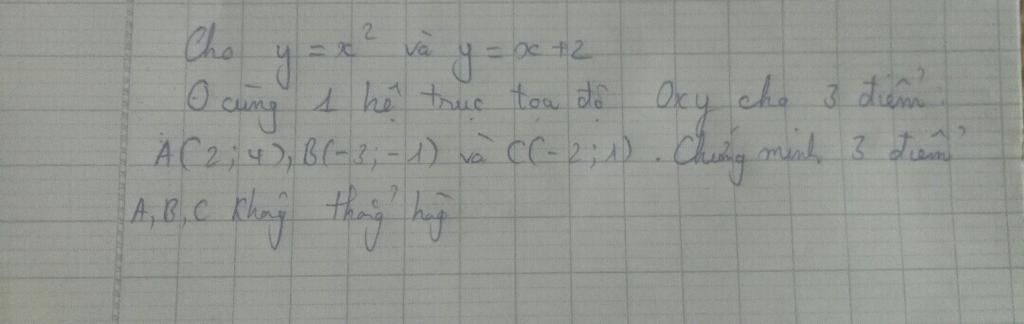 Cho y = x² và y = x + 2
Ở cùng 1 hệ trục tọa độ Oxy cho 3 điểm
A(2;4), B(-3;-1) và C(-2;1). Chứng minh 3 điểm
A, B, C không thẳng hàng